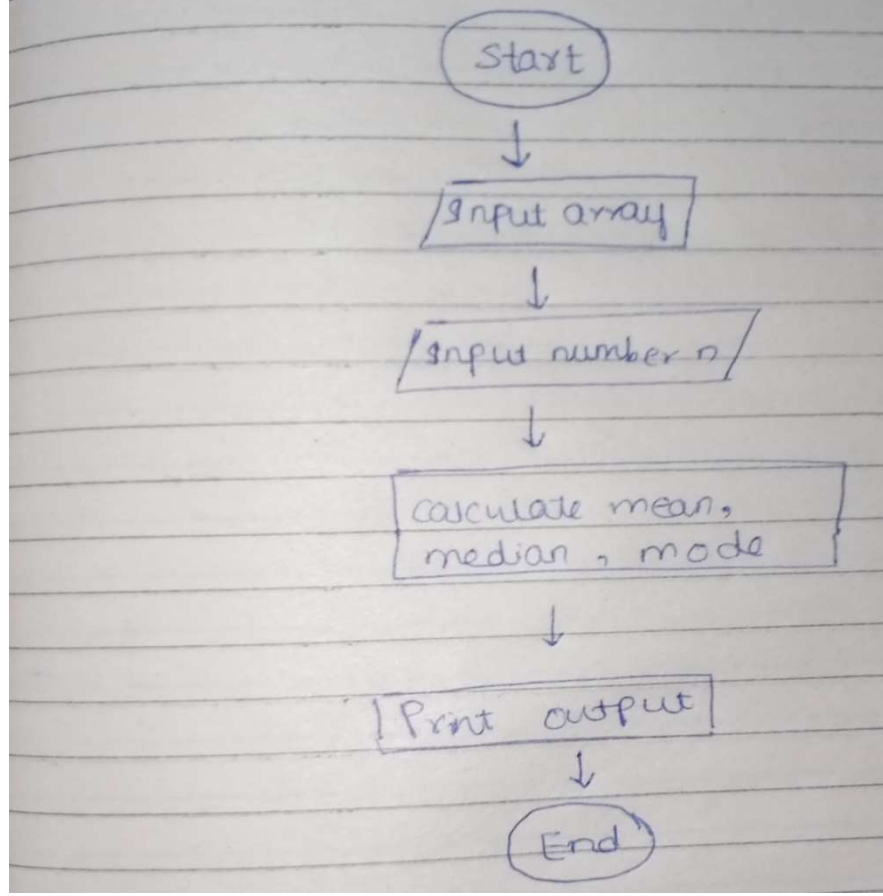 Start
Input array
Input number n
calculate mean,
median, mode
Print output
End